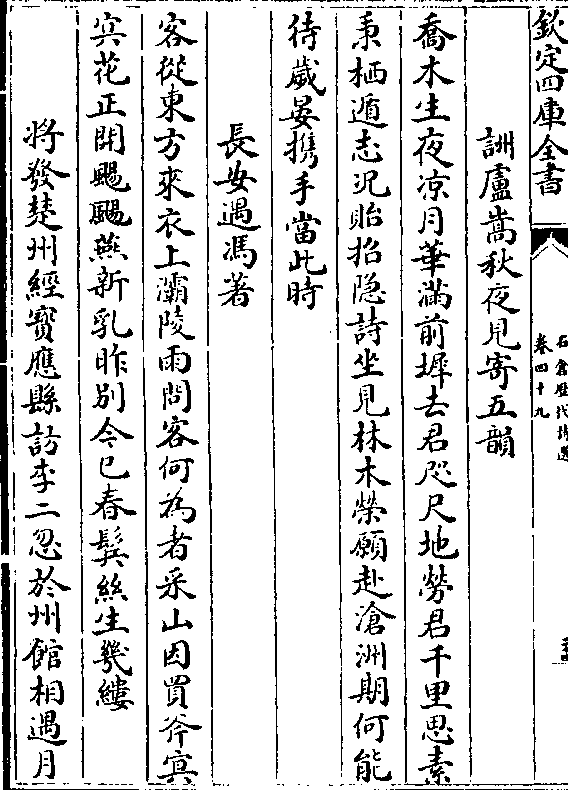 欽定四庫全書
石倉歴代詩選
卷四十九
詶盧嵩秋夜見寄五韻
喬木生夜凉月華滿前墀去君咫尺地勞君千里思素
秉栖遁志况貽招隐詩坐見林木榮願赴滄洲期何能
待歲晏携手當此時
長安遇馮著
客從東方來衣上灞陵雨問客何為者采山因買斧㝠
㝠花正開颺颺燕新乳昨别今已春鬂絲生幾縷
將發楚州經寶應縣訪李二忽於州館相遇月